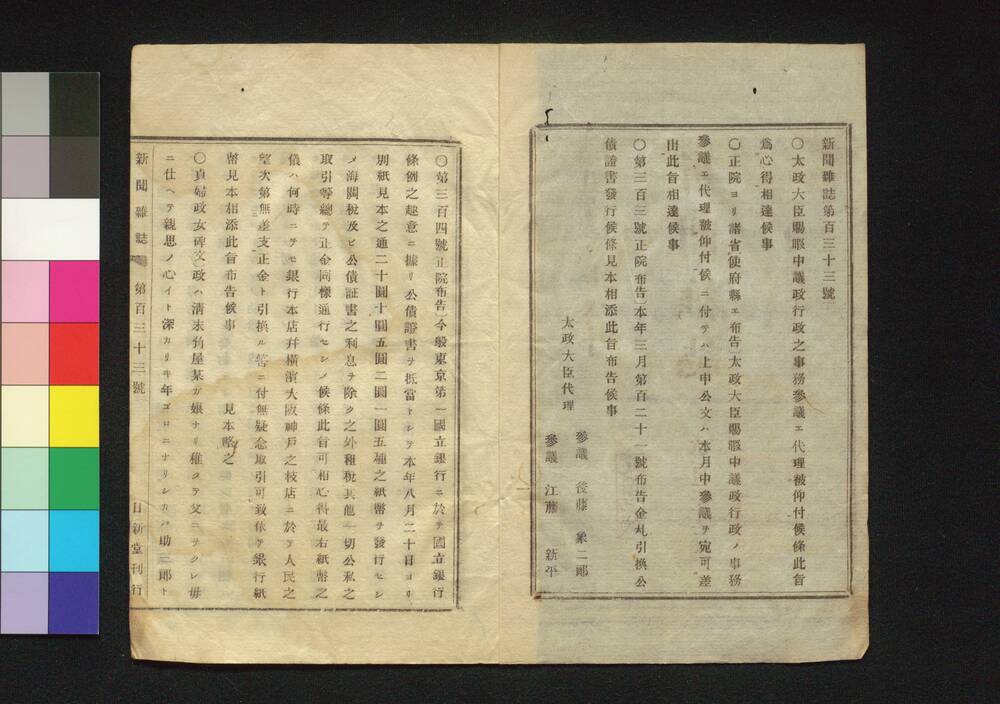 新聞雜誌第百三十三號
〇太政大臣賜暇中議政行政之事務參議エ代理被仰付候條此旨
爲心得相達候事
〇正院ヨリ諸省使府縣エ布告太政大臣賜暇中議政行政ノ事務
參議エ代理被仰付候ニ付テハ上申公文ハ本月中參議ヲ宛可差
出此旨相達候事
〇第三百三號正院布告〕本年三月第百二十一號布告金札引換公
債證書發行候條見本相添此旨布告候事
太政大臣代理
參議 後藤 象二郎
參議 江藤 新平
〇第三百四號正院布告〕今般東京第一國立銀行ニ於テ國立銀行
條例之趣意ニ據リ公債證書ヲ抵當トシテ本年八月二十日ヨリ
別紙見本之通二十圓十圓五圓二圓一圓五種之紙幣ヲ發行セシ
メ海關稅及ヒ公債証書之利息ヲ除ク之外租稅其他一切公私之
取引等總テ正金同樣通行セシメ候條此旨可相心得最右紙幣之
儀ハ何時ニテモ銀行本店幷橫濱大阪神戶之枝店ニ於テ人民之
望次第無差支正金ト引換ル筈ニ付無疑念取引可致依テ銀行紙
幣見本相添此旨布告候事 見本略之
〇貞婦政女碑文〕政ハ淸末角屋某ガ娘ナリ稚クテ父ニヲクレ毋
ニ仕ヘテ親思ノ心イト深カリキ年ゴロニナリシカバ助三郎ト
新聞雜誌 第百三十三號 日新堂刊行